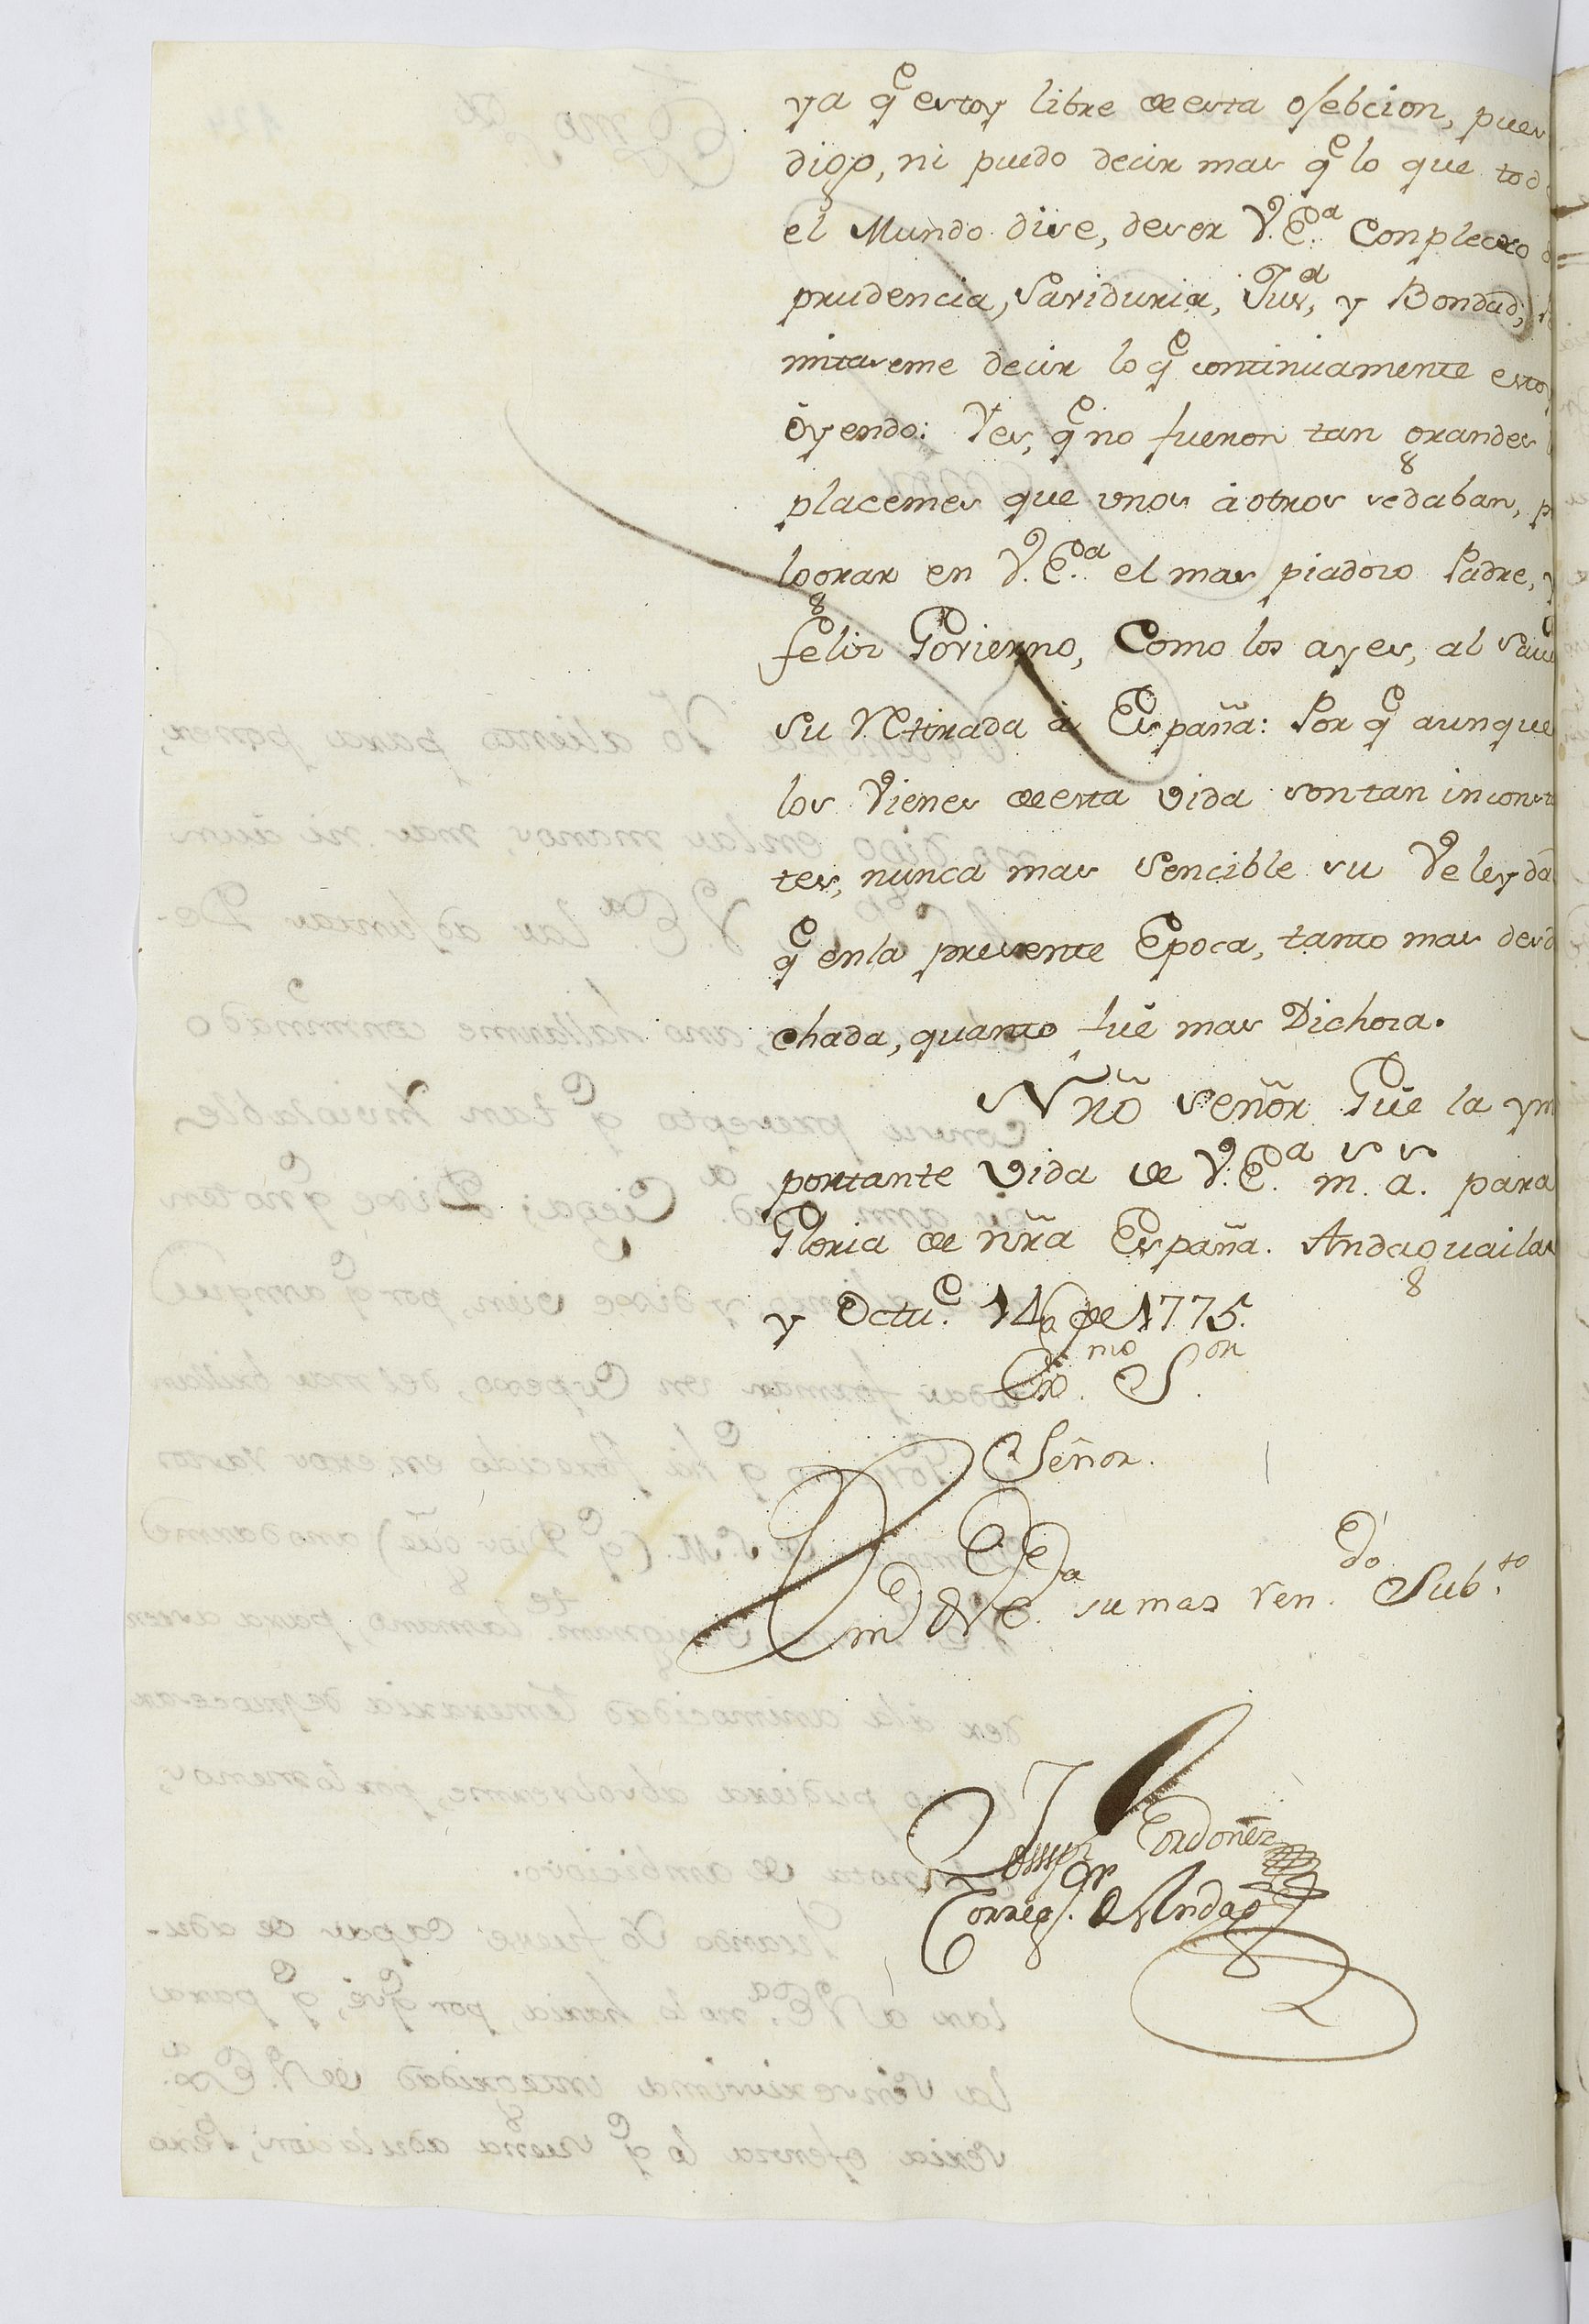 ya q.e estoy libre de esta osebcion, pues
digo, ni puedo decir mas q.e lo que tod
el Mundo dise, deser V.E.a Conplecxo d
prudencia, Saviduria, Jus.a, y Bondad;
mitaseme decir lo q.e continuamente esto
oyendo: Yes, q.e no fueron tan grandes
placemes que unos à otros sedaban, p
lograr en V.E.a el mas piadozo Padre, y
feliz Govierno, Como los ayes, al Save
su Retirada à España: Por q.e aunque
los Vienes de esta vida son tan inconst
tes, nunca mas Sencible su Veleyda
q.e enla presente Epoca, tanto mas desd
chada, quanto fuè mas Dichoza.
Nrõ Señor Gũe la ym
portante vida de V.E.a m.s a.s para
Gloria de nrã España. Andaguailas
y Octu.e 14 de 1775.
Ex.mo S.or
Señor.
BLM de V.E.a su mas ren.do Sub.to
Joseph Ordoñez
Correg.or de Andag.s